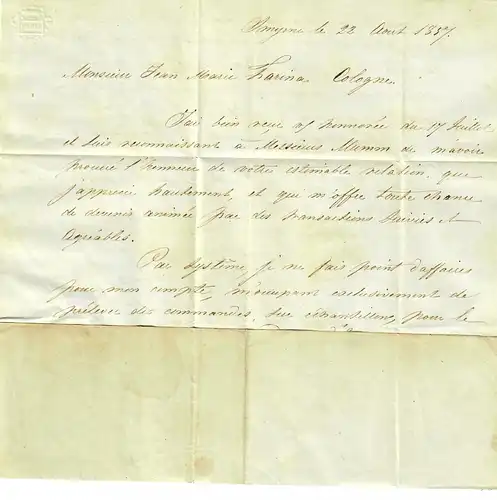 Smyrne le 22 Aout 1857.
Monsieur Jean Marie Farina. Cologne.
J'ai bien reçu vs honnorée du 17 Juillet
et suis reconnaissant à Messieurs Mumm de m'avoir
procuré l'honneur de votre estimable relation, que
j'apprecie hautement et qui m'offre toute chance
de devenir animée par des transactions suivies et
agréables.
Par système, je ne fais point d'affaires
pour mon compte, m'occupant exclusivement de
prélever des commandes, sur échantillons, pour le